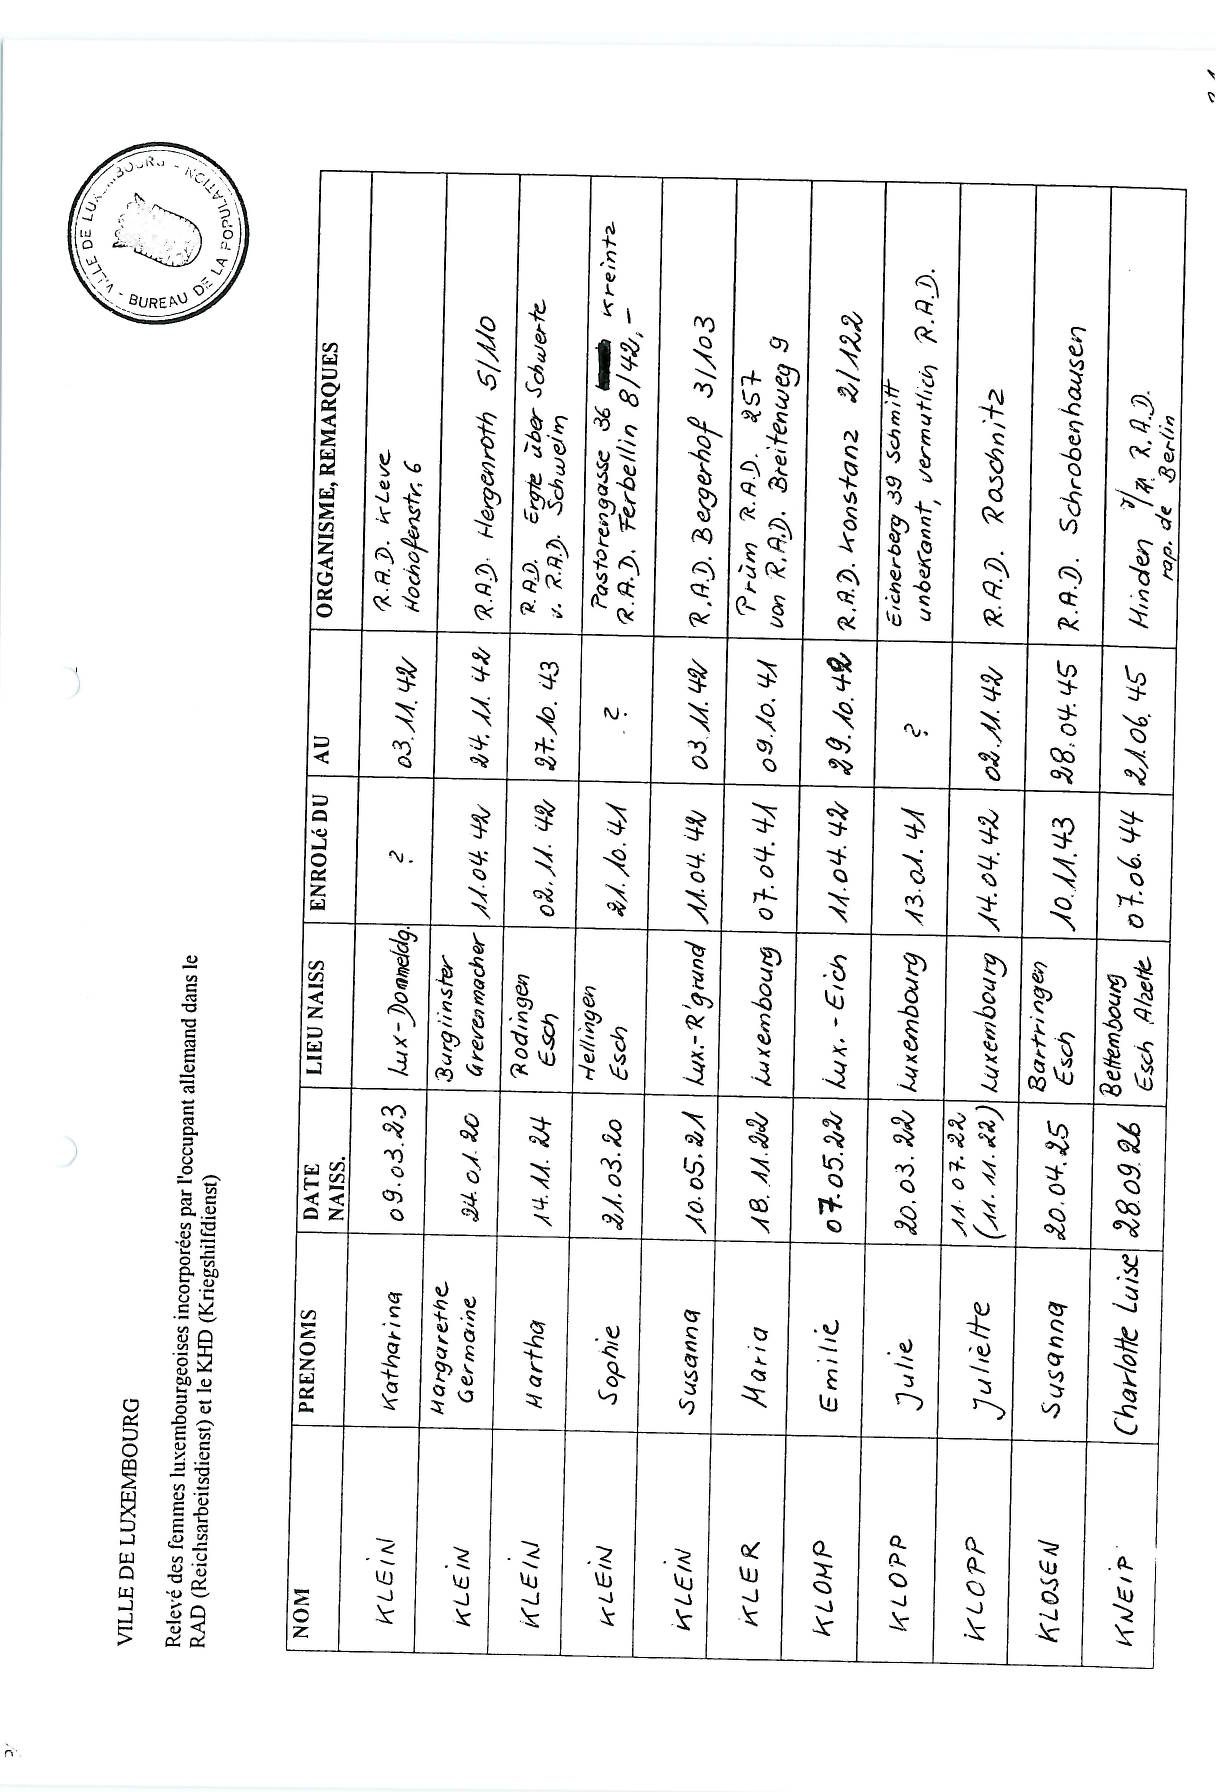 VILLE DE LUXEMBOURG
VILLE DE LUXEMBOURG - BUREAU DE LA POPULATION -
Relevé des femmes luxembourgeoises incorporées par l'occupant allemand dans le
RAD (Reichsarbeitsdienst) et le KHD (Kriegshilfdienst)
NOM PRENOMS DATE NAISS. LIEU NAISS ENROLé DU AU ORGANISME, REMARQUES
KLEIN Katharina 09.03.23 Lux-Dommeldg. ? 03.11.42 R.A.D. Kleve
Hochofenstr. 6
KLEIN Margarethe 24.01.20 Burglinster 11.04.42 24.11.42 R.A.D. Hergenroth 5/110
Germaine Grevenmacher
KLEIN Martha 14.11.24 Rodingen 02.11.42 27.10.43 R.A.D. Ergte über Schwerte
Esch v. R.A.D. Schwelm
KLEIN Sophie 21.03.20 Hellingen 21.10.41 ? Pastorengasse 36 Kreintz
Esch R.A.D. Ferbellin 8/42,-
KLEIN Susanna 10.05.21 Lux.-R'grund 11.04.42 03.11.42 R.A.D. Bergerhof 3/103
KLER Maria 18.11.22 Luxembourg 07.04.41 09.10.41 Prüm R.A.D. 257
von R.A.D. Breitenweg 9
KLOMP Emilie 07.05.22 Lux.-Eich 11.04.42 29.10.42 R.A.D. Konstanz 2/122
KLOPP Julie 20.03.22 Luxembourg 13.01.41 ? Eicherberg 39 Schmitt
unbekannt, vermutlich R.A.D.
KLOPP Juliètte 11.07.22 Luxembourg 14.04.42 02.11.42 R.A.D. Raschnitz
(11.11.22)
KLOSEN Susanna 20.04.25 Bartringen 10.11.43 28.04.45 R.A.D. Schrobenhausen
Esch
KNEIP Charlotte Luise 28.09.26 Bettembourg 07.06.44 21.06.45 Minden R.A.D.
Esch Alzette rap. de Berlin